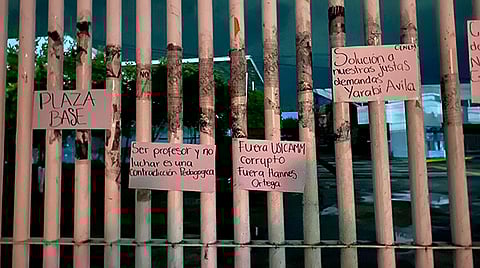 PLAZA
BASE
Ser profesor y no
luchar es una
contradicción Pedagogica
Fuera USICAMM
corrupto
Fuera Hannes
Ortega
Solución a
nuestras justas
demandas
Yarabi Avila